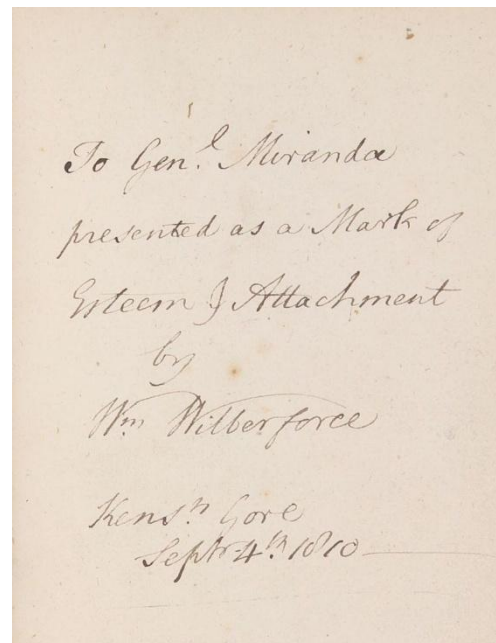 To Gen.l Miranda
presented as a Mark of
Esteem & Attachment
by
Wm Wilberforce
Kens.n Gore
Septr 4th 1810